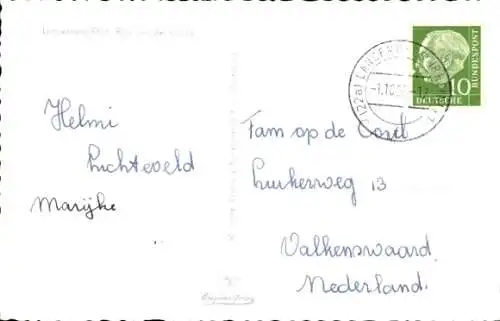 Helmi
Luchteveld
Marijke
Fam op de Coul
Luikerweg 13
Valkenswaard
Nederland.
10
DEUTSCHE
BUNDESPOST
(22a)
-1.10.5